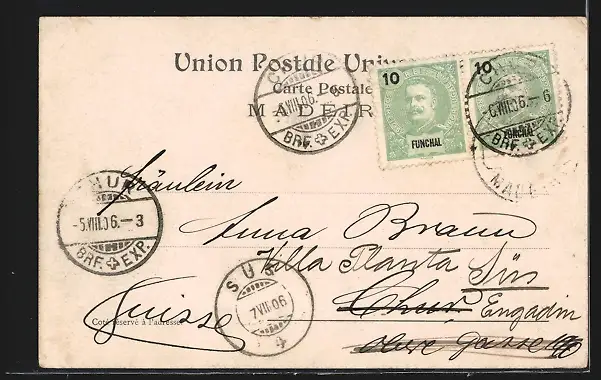 Union Postale Univ
Carte Postale
MADEIR
10
FUNCHAL
10
FUNCHAL
6.VIII.06.-6
BRF. EXP.
6.VIII.06.
BRF. EXP.
CHUR
-5.VIII.06.-3
BRF. EXP.
Fräulein
Anna Braun
Villa Planta Süs
Chur Engadin
Suisse
obere gasse
Coté réservé à l'adresse
SÜS
7.VIII.06
4